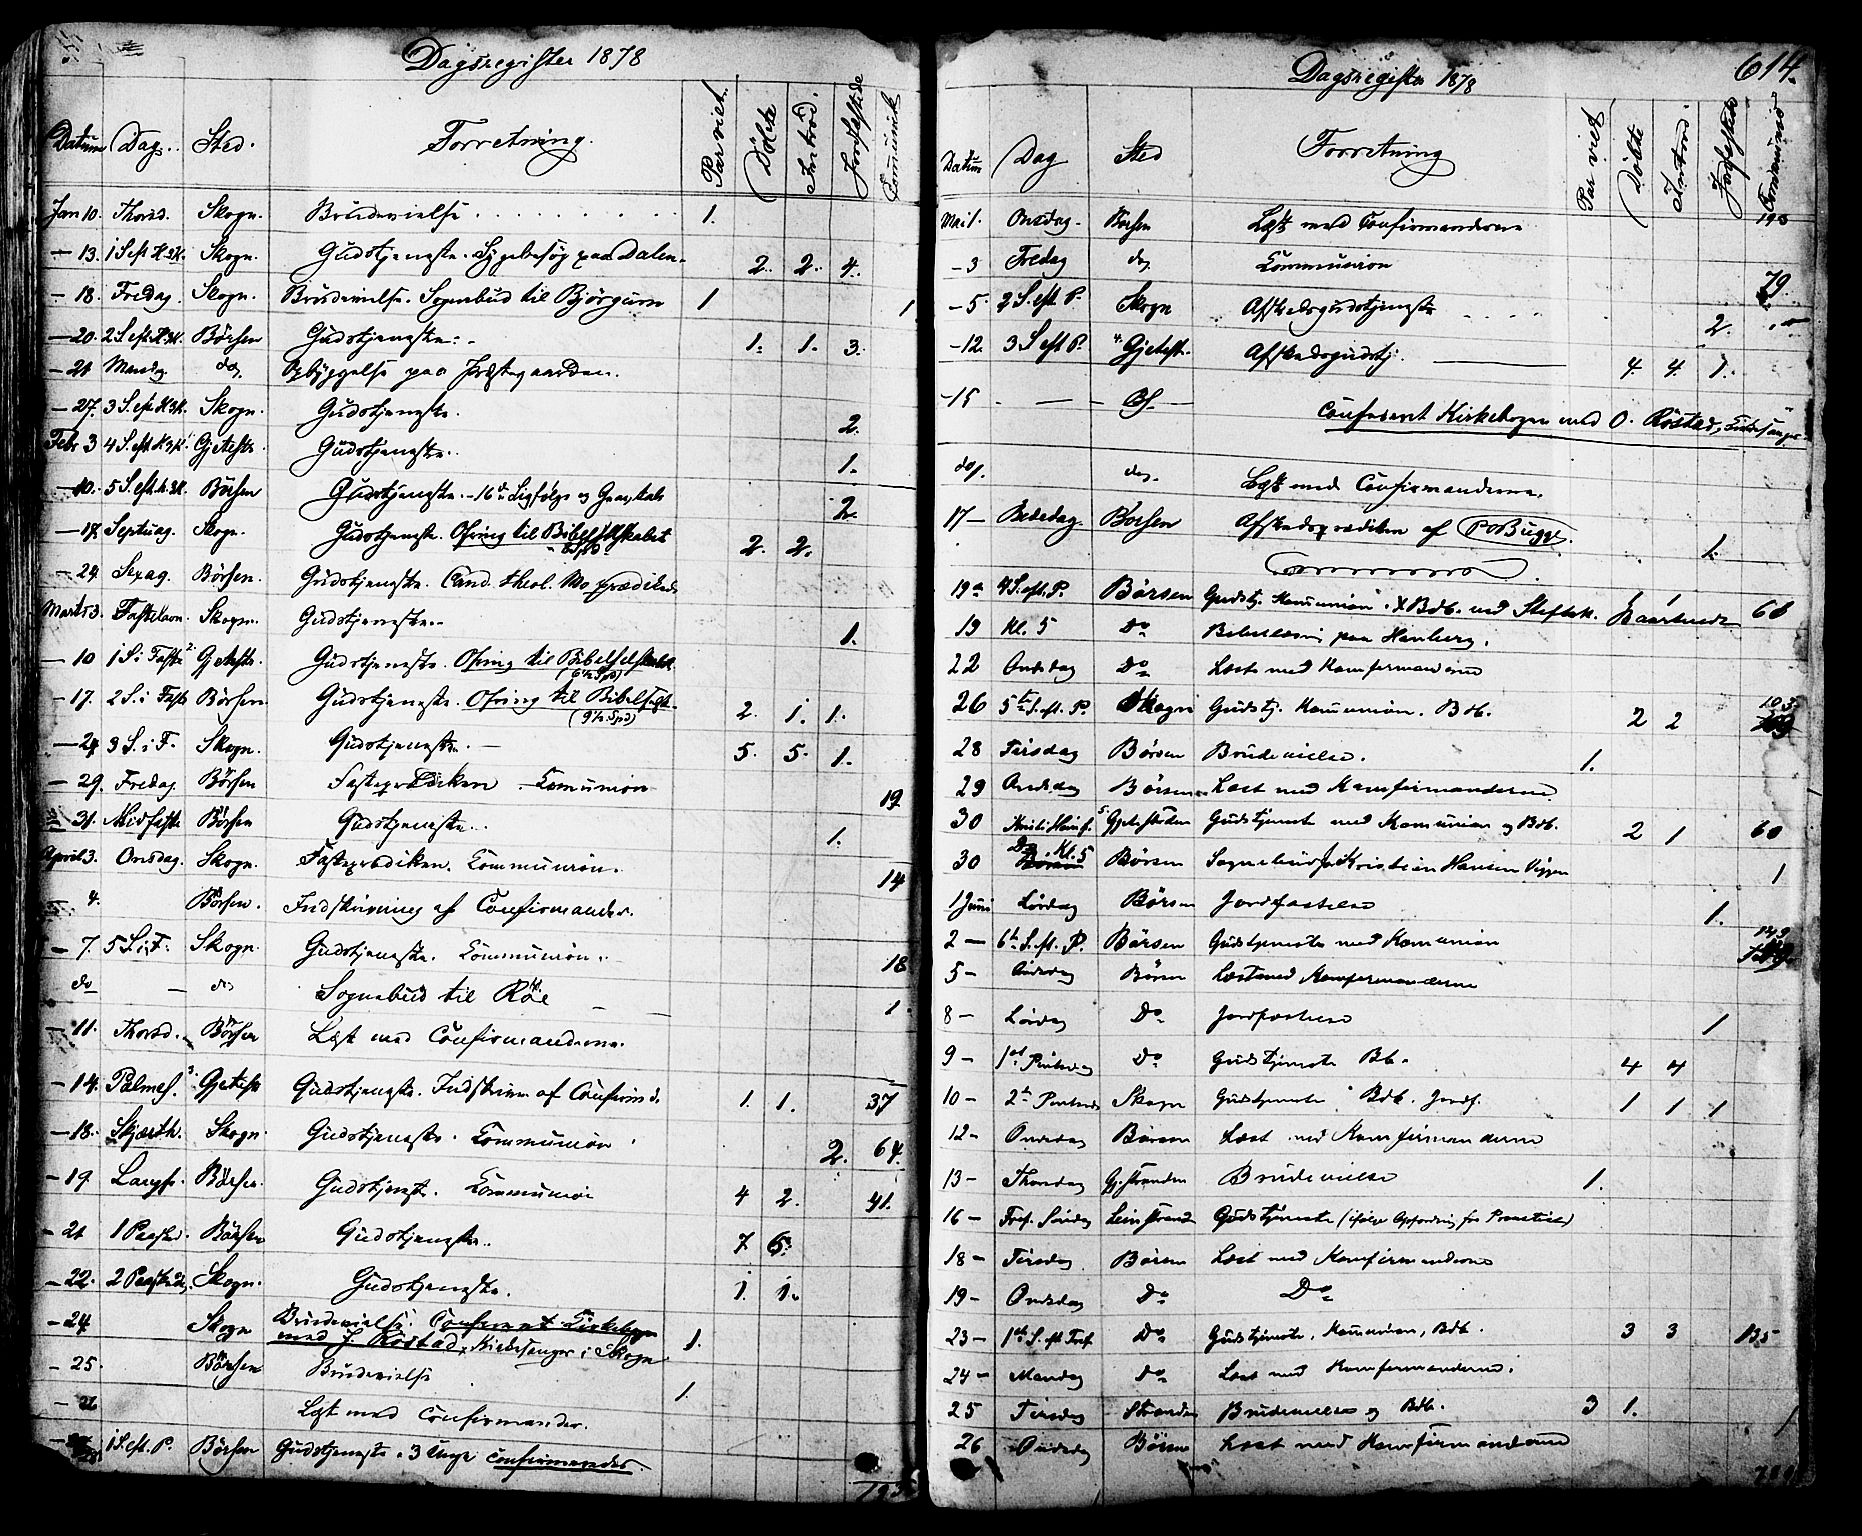 Dagsregister 1878
Datum Dag. Sted. Forretning. Par viet. Döbte Introd. Jordfæstede Communik
Jan 10. Thorsd. Skogn. Brudevielse . . . . . . . . . . 1.
— 13. 1 S. eft H.3K. Skogn. Gudstjeneste. Sygebesøg paa Dalen. 2. 2. 4.
— 18. Fredag. Skogn. Brudevielse. Sognebud til Björgum 1 1
— 20. 2 S. eft. H.3K. Börsen Gudstjeneste. 1. 1. 3.
— 21 Mandag do, Opbyggelse paa Præstegaarden.
— 27. 3 S. eft H.3K. Skogn. Gudstjeneste. 2.
Febr 3 4 S. eft H3K Gjetestr. Gudstjeneste. 1.
— 10. 5 S. eft. h.3K. Börsen Gudstjeneste. — Ligfølge og Gravtale 2
— 17. Septuag. Skogn. Gudstjeneste. Ofring til Bibelselskabet 2. 2.
— 24. Sexag. Börsen. Gudstjeneste. Cand. theol. Mo prædikede
Marts 3. Fastelavn. Skogn. Gudstjeneste. 1.
— 10 1 S. i Faste Gjetestr. Gudstjeneste. Ofring til Bibelselskabet
(6½ Spd)
— 17. 2 S. i Faste Börsen. Gudstjeneste. Ofring til Bibelselsk. 2. 1. 1.
(9½ Spd)
— 24 3 S. i F. Skogn. Gudstjeneste. — 5. 5. 1.
— 29. Fredag Börsen Fasteprædiken — Comunion 19
— 31. Midfaste Börsen Gudstjeneste. 1.
April 3. Onsdag. Skogn. Fasteprædiken. Communion. 14
4. Börsen. Indskrivning af Confirmander.
— 7. 5 S. i F. Skogn. Gudstjeneste. Communion. 18
do — do Sognebud til Röe — 1.
— 11. Thorsd. Börsen Læst med Confirmanderne.
— 14. Palmes. Gjetestr Gudstjeneste. Indskrivn af Confirmd. 1. 1. 37
— 18. Skjærth. Skogn. Gudstjeneste. Communion 2. 64.
— 19. Langfr. Börsen. Gudstjeneste. Communion 4 2. 41.
— 21 1 Paaskd. Börsen Gudstjeneste. 7 6.
— 22. 2 Paaskedg. Skogn. Gudstjeneste. 1. 1.
— 24 Skogn Brudevielse. Confereret Kirkebogen 1.
med J. Röstad, Kirkesanger i Skogn.
— 25. Börsen Brudevielse 1.
— 26 Læst med Confirmander.
1 S. eft. P. Börsen Gudstjeneste. 3 Unge confirmander.
Dagsregister 1878 614.
Datum Dag Sted Forretning Par viet Döbte Introd. Jordfæstede Communic
Mai 1. Onsdag. Börsen Læst med Confirmanderne
— 3 Fredag do, Communion 79.
— 5. 2 S. eft. P. Skogn Afskedsgudstjeneste . . . . 2.
— 12. 3 S eft P. Gjetestr. Afskedsgudstj. — 4. 4. 1.
— 15 — Confereret Kirkebogen med O. Röstad, Kirkesanger
do, do, Læst med Confirmanderne.
17 — Bededag. Börsen Afskedsprædiken af PO Bugge. 1.
19 4 S. eft. P. Börsen Gudstj. Kommunion. 66
19 Kl. 5 Do Bibellæsning paa Hamberg.
22 Onsdag Do Læst med Konfirmanderne
26 5te S. eft. P. Skogn Gudstj. Kommunion. Bdb. 2 2 103
28 Tirsdag Börsen Brudevielse. 1.
29 Onsdag Börsen Læst med Konfirmanderne.
30 Kristi Himf. Gjetestranden Gudstjeneste med Kommunion og Bdb. 2 1 60
30 Do Kl. 5 Börsen Sognebud f. Kristian Hansen Viggen 1
1 Juni Lördag Börsen Jordfæstelse 1.
2 — 6te S. eft. P. Börsen Gudstjeneste med Kommunion
5 — Onsdag Börsen Læst med Konfirmanderne
8 — Lördag Do Jordfæstelse 1
9 — 1ste Pintsedag Do Gudstjeneste Bdb. 4 4
10 — 2den Pintsedag Skogn Gudstjeneste Bdb. Jordf. 1 1 1
12 — Onsdag Börsen Læst med Konfirmanderne
13 — Thorsdag Gj. stranden Brudevielse 1.
16 — Tref. Söndag Leinstrand Gudstjeneste (ifølge Opfordring fra Provsten)
18 — Tirsdag Börsen Læst med Konfirmanderne
19 — Onsdag Do Do
23 — 1ste S. eft Tref. Do Gudstjeneste, Kommunion, Bdb. 3 3 135
24 — Mandag Do Læst med Konfirmanderne.
25 Tirsdag Stranden Brudevielse og Bdb. 3 1.
26 Onsdag Börsen Læst med Konfirmanderne